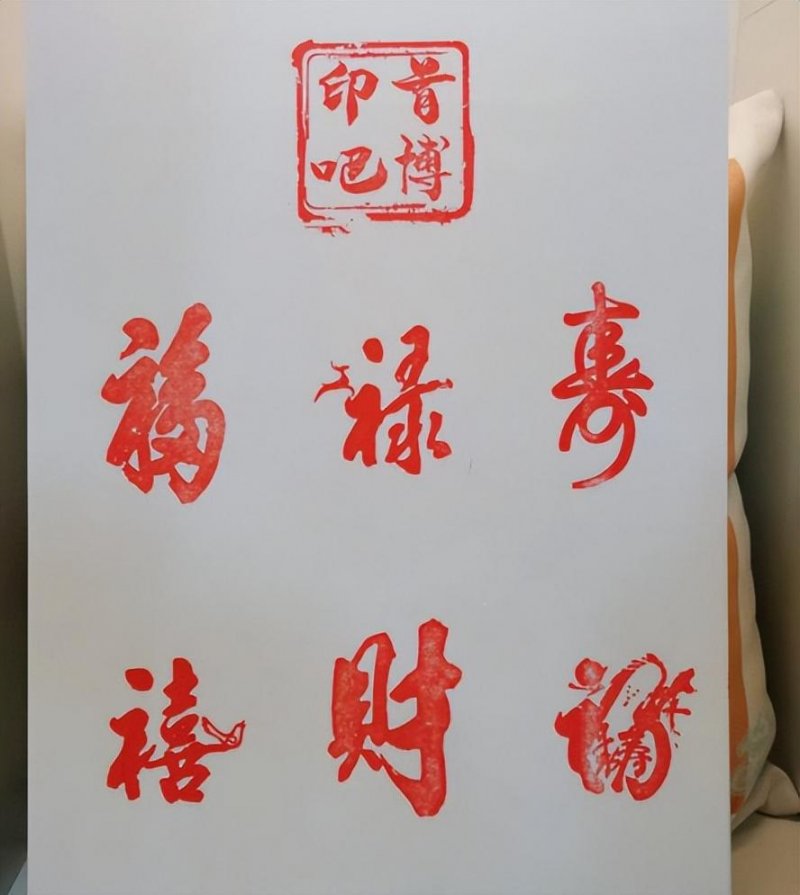 首博
印吧
福禄寿
禧财福